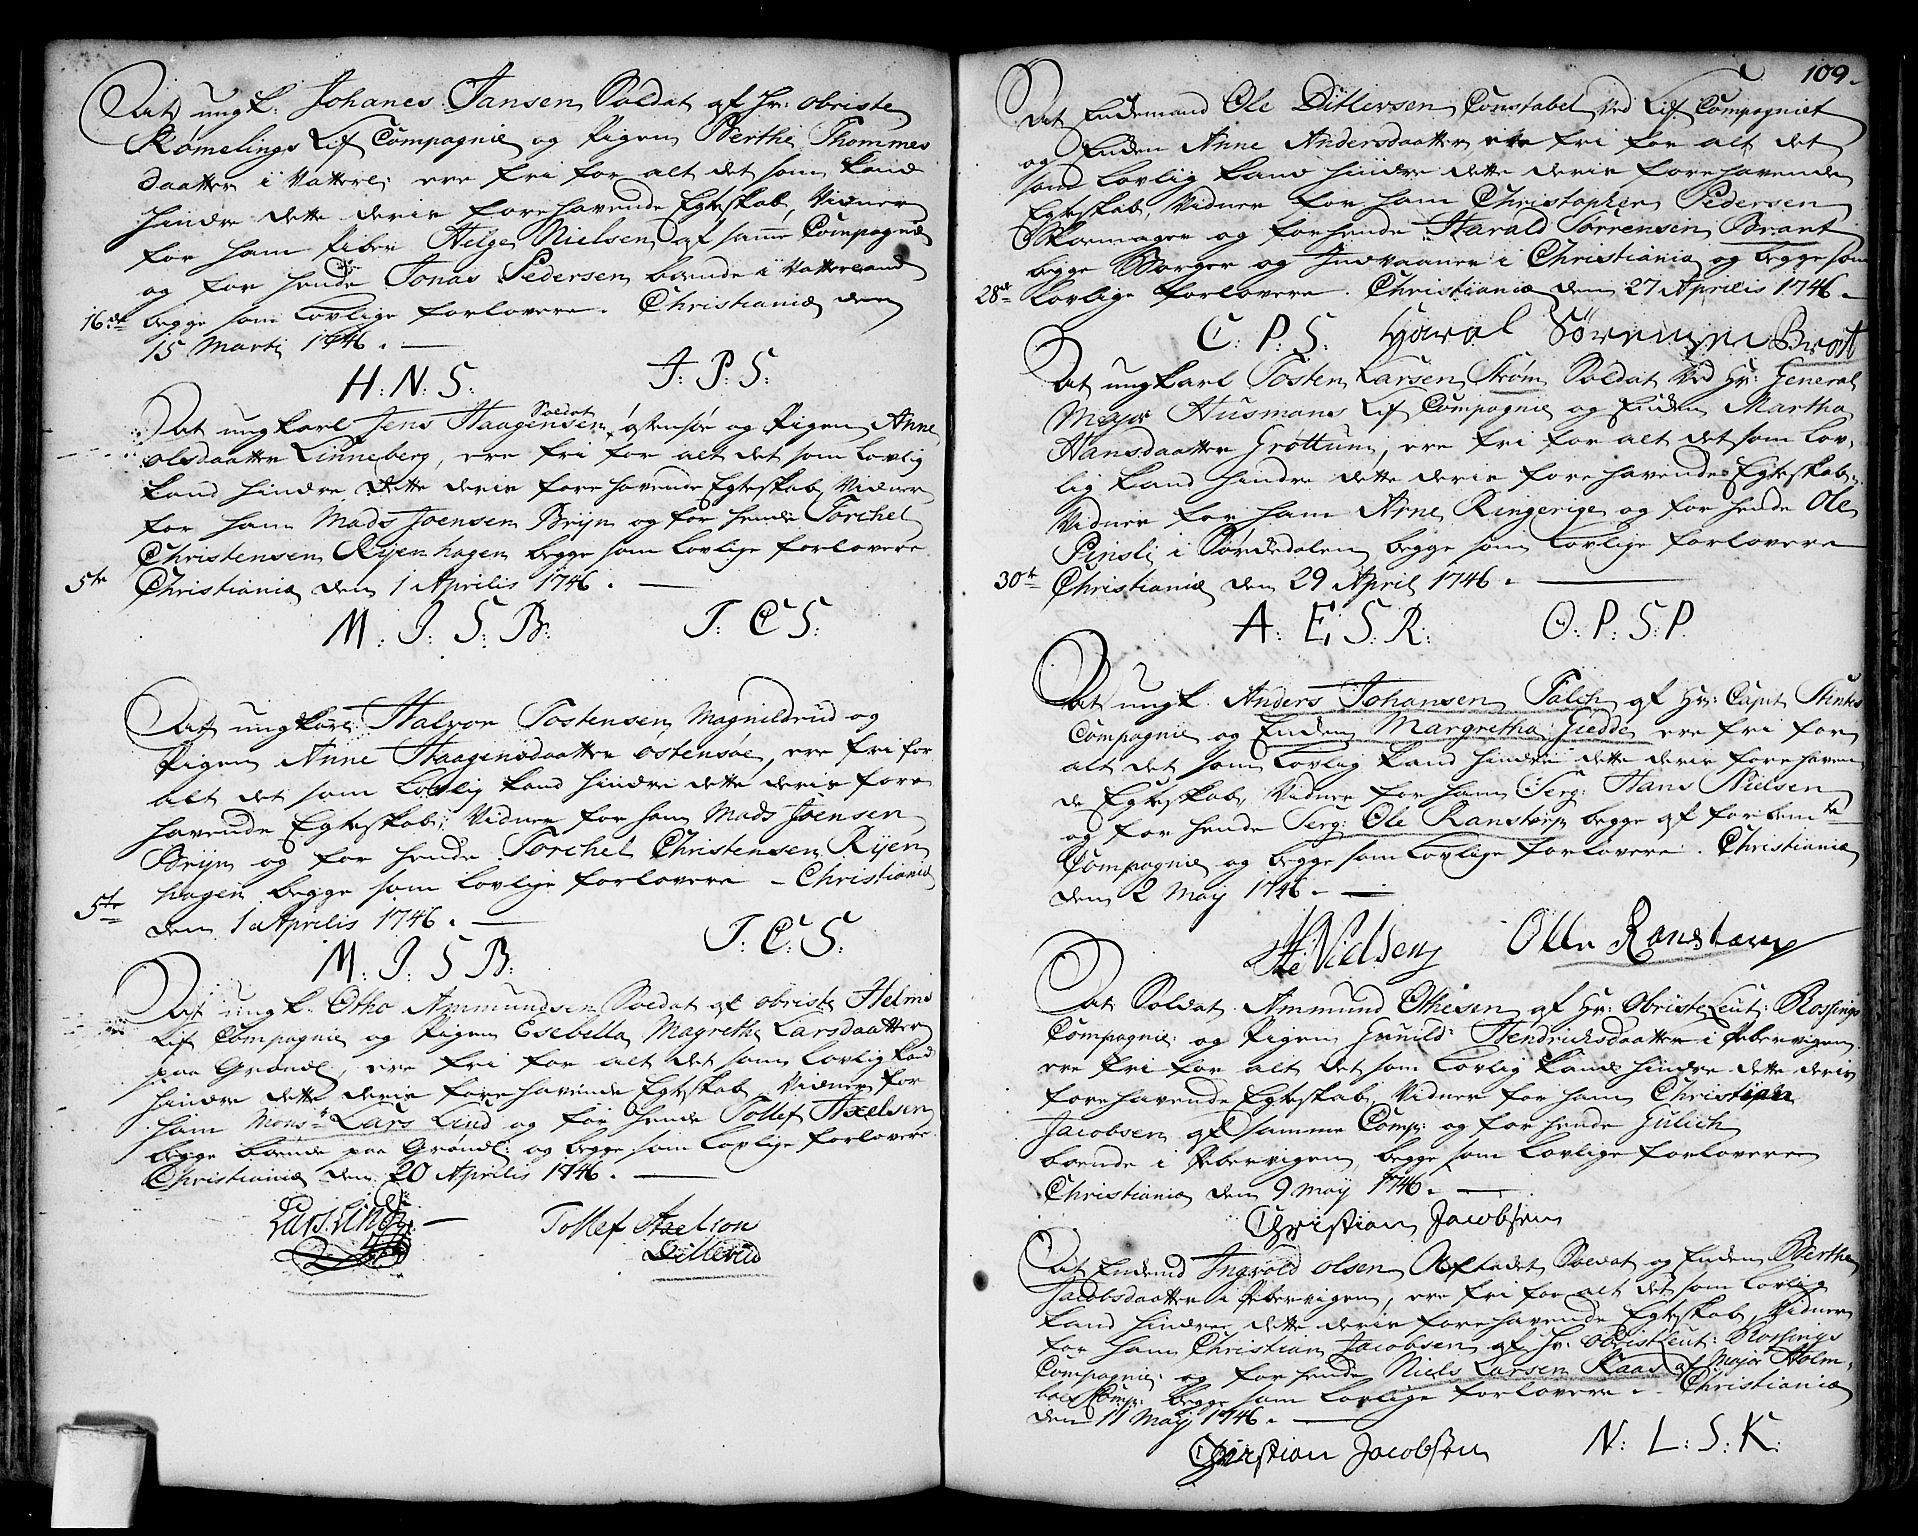 At ungk: Johanes Jansen Soldat af Hr: obriste
Rømelings Lif Compagnie og Pigen Berthe Thommes
daatter i Vatterl: ere fri for alt det som kand
hindre dette deris forehavende Egteskab, Vidner
for ham Piber Helge Nielsen af samme Compagnie
og for hende Jonas Pedersen boende i Vatterland
begge som Lovlige forlovere. Christiania den
16de
15 Marti 1746.
H: N: S: J: P: S:
At ungkarl Jens Haagensen Soldat østensøe og Pigen Anne
olsdaatter Linneberg, ere fri for alt det som lovlig
kand hindre dette deris forehavende Egteskab, Vidner
for ham Mads Joensen Bryn og for hende Torchel
Christensen Ryenhagen begge som lovlige forlovere
5te Christiania den 1 Aprilis 1746.
M: J: S: B: T: C S:
At ungkarl Halvor Tostensen Magnildrud og
Pigen Anne Haagensdaatter ostensøe, ere fri for
alt det som Lovlig kand hindre dette deris fore
havende Egteskab, Vidner for ham Mads Joensen
Bryn og for hende Torchel Christensen Ryen
hagen begge som lovlige forlovere - Christiania
5te
den 1 Aprilis 1746.
M: J: S B: T: C: S:
At ungk. Otho Ammundsen Soldat af obriste Helms
Lif Compagnie og Pigen Esebella Magrethe Larsdaatter
paa Grøndl, ere fri for alt det som lovlig kand
hindre dette deris forehavende Egteskab, Vidner for
ham Monsr Lars Lind og for hende Tollef Axelsen
begge boende paa Grøndl: og begge som lovlige forlovere
Christiania den 20 Aprilis 1746.
Lars: Lind Tollef Axelson
Lillerud
109.
Det Enkemand Ole Ditlersen Constabel ved Lif Compagniet
og Enken Anne Andersdaatter ere fri for alt det
som lovlig kand hindre dette deris forehavende
Egteskab, Vidner for ham Christopher Pedersen
Skoemager og for hende Harald Sørrensen Brant
begge Borger og Indvaaner i Christiania og begge som
28de lovlige forlovere. Christiania den 27 Aprilis 1746.
C: P: S: Haral Sørensen Brat
At ungkarl Tosten Larsen Strøm Soldat ved Hr: General
Mejor Husmans Lif Compagnie og Enken Martha
Hansdaatter Grøttum, ere fri for alt det som lov,
lig kand hindre dette deris forehavende Egteskab,
Vidner for ham Arne Ringerige og for hende Ole
i Sørkedalen begge som lovlige forlovere
30te Christiania den 29 April 1746.
A: E: S: R: O: P: S: P.
At ungk. Anders Johansen Falch af Hr: Capit
Compagnie og Enken Margretha Giedde ere fri for
alt det som lovlig kand hindre dette deris forehaven
de Egteskab, Vidner for ham Serg: Hans Nielsen
og for hende Serg: Ole Ranstorp begge af forbemte
Compagnie og begge som lovlige forlovere. Christiania
den 2 Maij 1746.
H: Nielsen Olle Ranstarp
At Soldat Ammund Othesen af Hr: Obriste Leut: Rossings
Compagnie: og Pigen Gunild: Hendrichsdaatter i Pebervigen
ere fri for alt det som lovlig kand hindre dette deris
forehavende Egteskab, Vidner for ham Christian
Jacobsen af samme Comp: og for hende Gulich
boende i Pebervigen, begge som lovlige forlovere
Christiania den 9 maij 1746.
Christian Jacobsen
At Enkemd Ingvold olsen Aftadet Soldat og Enken Berthe
Jacobsdaatter i Pebervigen, ere fri for alt det som lovlig
kand hindre dette deris forehavende Egteskab, Vidner
for ham Christian Jacobsen af Hr: obristleut: Rossings
Compagnie: og for hende Niels Larsen Kaas af Major Holm,
boes Comp: begge som lovlige forlovere. Christiania
den 11 maij 1746.
Christian Jacobsen N: L: S: K: